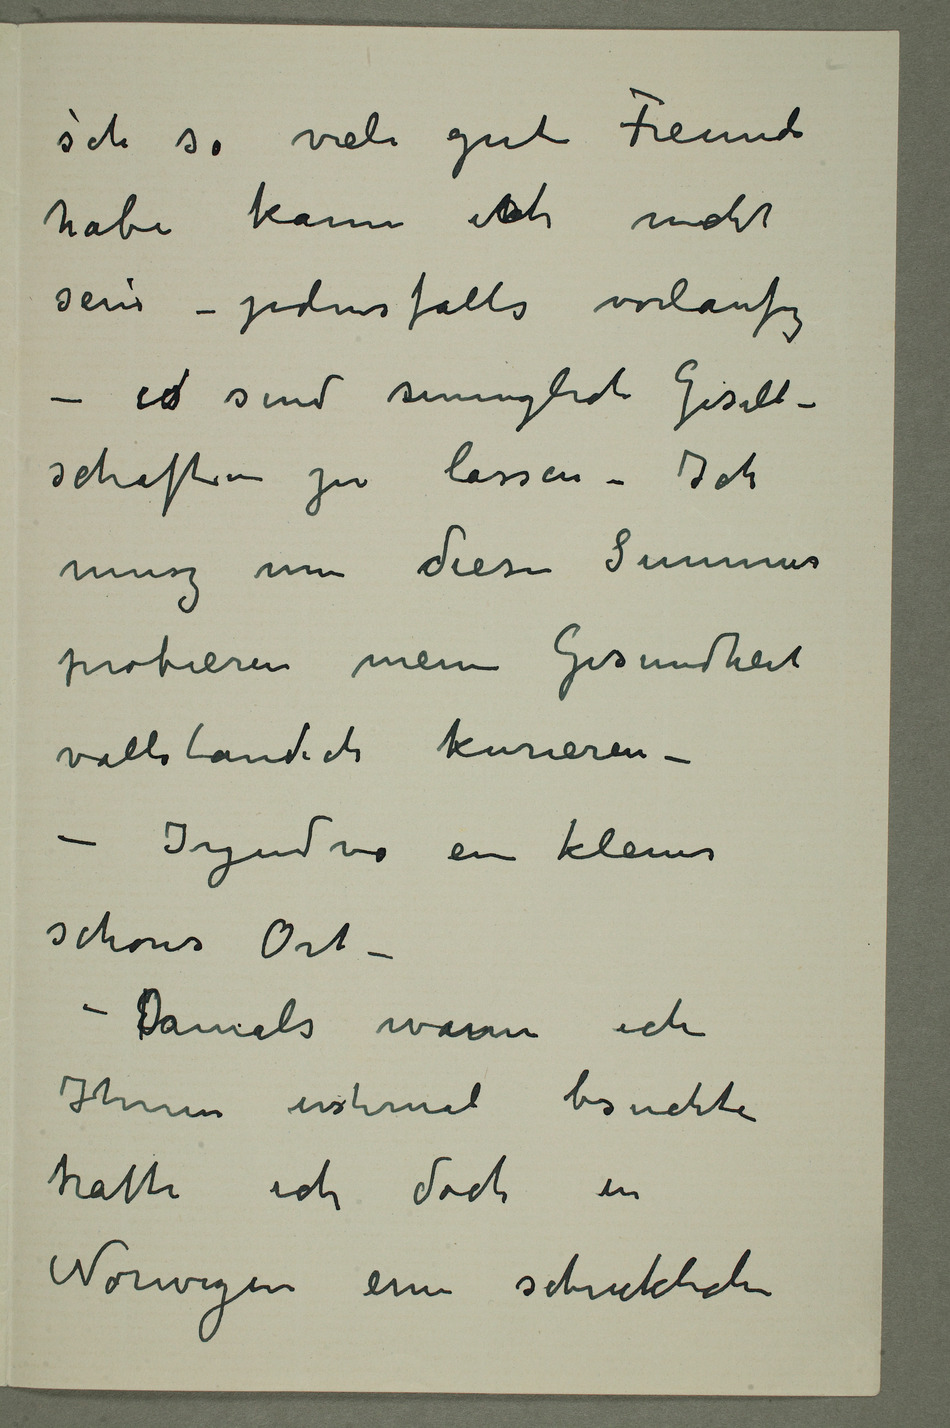 ich so viele gute Freunde
habe kann ich nicht
sein – jedensfalls vorlaufig
– es sind Gesell-
schaften zu lassen – Ich
musz nun diesen Summer
probieren meine Gesundheit
vollstandich kurieren –
– Irgendvo ein kleines
schones Ort –
– Damals wann ich
Ihnen erstemal besuchte
hatte ich doch in
Norwegen eine schrickliche